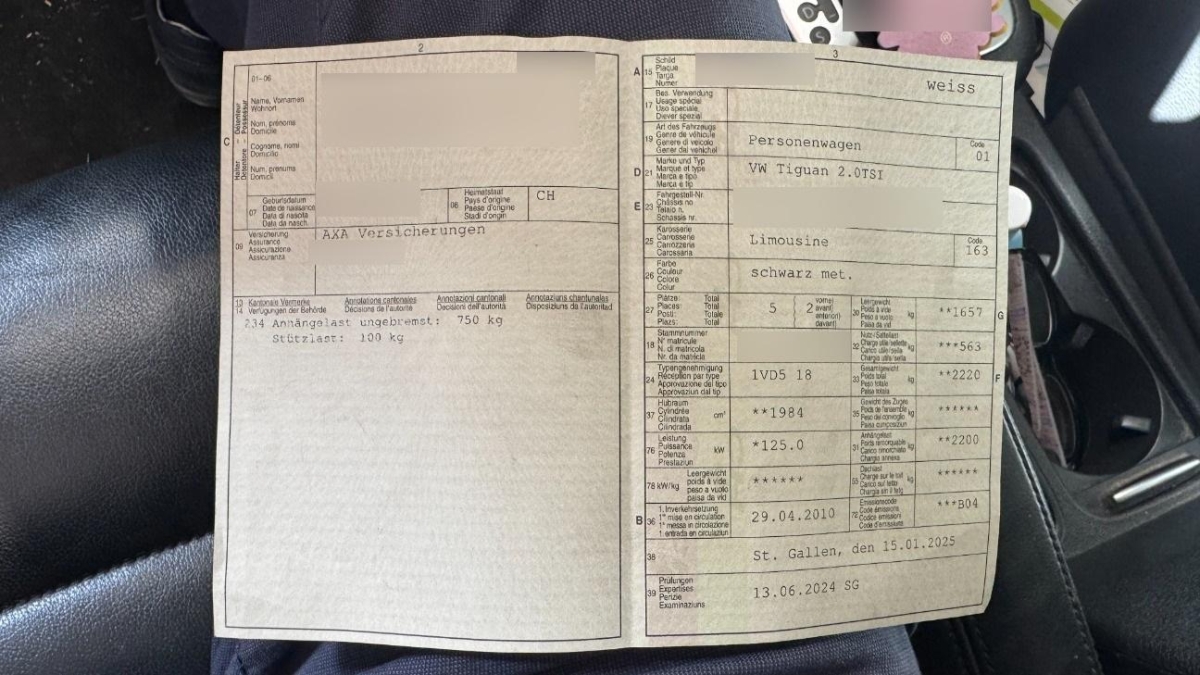 2
01-06
C
Halter Détenteur Detentore
Name, Vornamen
Wohnort
Nom, prénoms
Domicile
Cognome, nomi
Domicilio
Num, prenums
Domicil
07
Geburtsdatum
Date de naissance
Data di nascita
Data da nasch.
08
Heimatstaat
Pays d'origine
Paese d'origine
Stadi d'origin
CH
09
Versicherung
Assurance
Assicurazione
Assicuranza
AXA Versicherungen
13 Kantonale Vermerke Annotations cantonales Annotazioni cantonali Annotaziuns chantunalas
14 Verfügungen der Behörde Décisions de l'autorité Decisioni dell'autorità Disposiziuns da l'autoritad
234 Anhängelast ungebremst: 750 kg
Stützlast: 100 kg
3
A 15
Schild
Plaque
Targa
Numer
weiss
17
Bes. Verwendung
Usage spécial
Uso speciale
Diever spezial
19
Art des Fahrzeugs
Genre de véhicule
Genere di veicolo
Gener dal vehichel
Personenwagen
Code
01
D 21
Marke und Typ
Marque et type
Marca e tipo
Marca e tip
VW Tiguan 2.0TSI
E 23
Fahrgestell-Nr.
Châssis no
Telaio n.
Schassis nr.
25
Karosserie
Carrosserie
Carrozzeria
Carossaria
Limousine
Code
163
26
Farbe
Couleur
Colore
Colur
schwarz met.
27
Plätze: Total
Places: Total
Posti: Totale
Plazs: Total
5
2
vorne
avant
anteriori
davant
30
Leergewicht
Poids à vide
Peso a vuoto
Paisa da vid
kg
**1657
G
18
Stammnummer
N° matricule
N. di matricola
Nr. da matricla
32
Nutz-/Sattellast
Charge utile/sellette
Carico utile/sella
Chargia utila/sella
kg
***563
24
Typengenehmigung
Réception par type
Approvazione del tipo
Approvaziun dal tip
1VD5 18
33
Gesamtgewicht
Poids total
Peso totale
Paisa totala
kg
**2220
F
37
Hubraum
Cylindrée
Cilindrata
Cilindrada
cm³
**1984
35
Gewicht des Zuges
Poids de l'ensemble
Peso del convoglio
Paisa cumposiziun
kg
******
76
Leistung
Puissance
Potenza
Prestaziun
kW
*125.0
31
Anhängelast
Poids remorquable
Carico rimorchiato
Chargia annexa
kg
**2200
78 kW/kg
Leergewicht
poids à vide
peso a vuoto
paisa da vid
******
55
Dachlast
Charge sur le toit
Carico sul tetto
Chargia sin il tetg
kg
******
B 36
1. Inverkehrsetzung
1re mise en circulation
1a messa in circolazione
1. entrada en circulaziun
29.04.2010
72
Emissionscode
Code émissions
Codice emissioni
Code d'emissiuns
***B04
38
St. Gallen, den 15.01.2025
39
Prüfungen
Expertises
Perizie
Examinaziuns
13.06.2024 SG